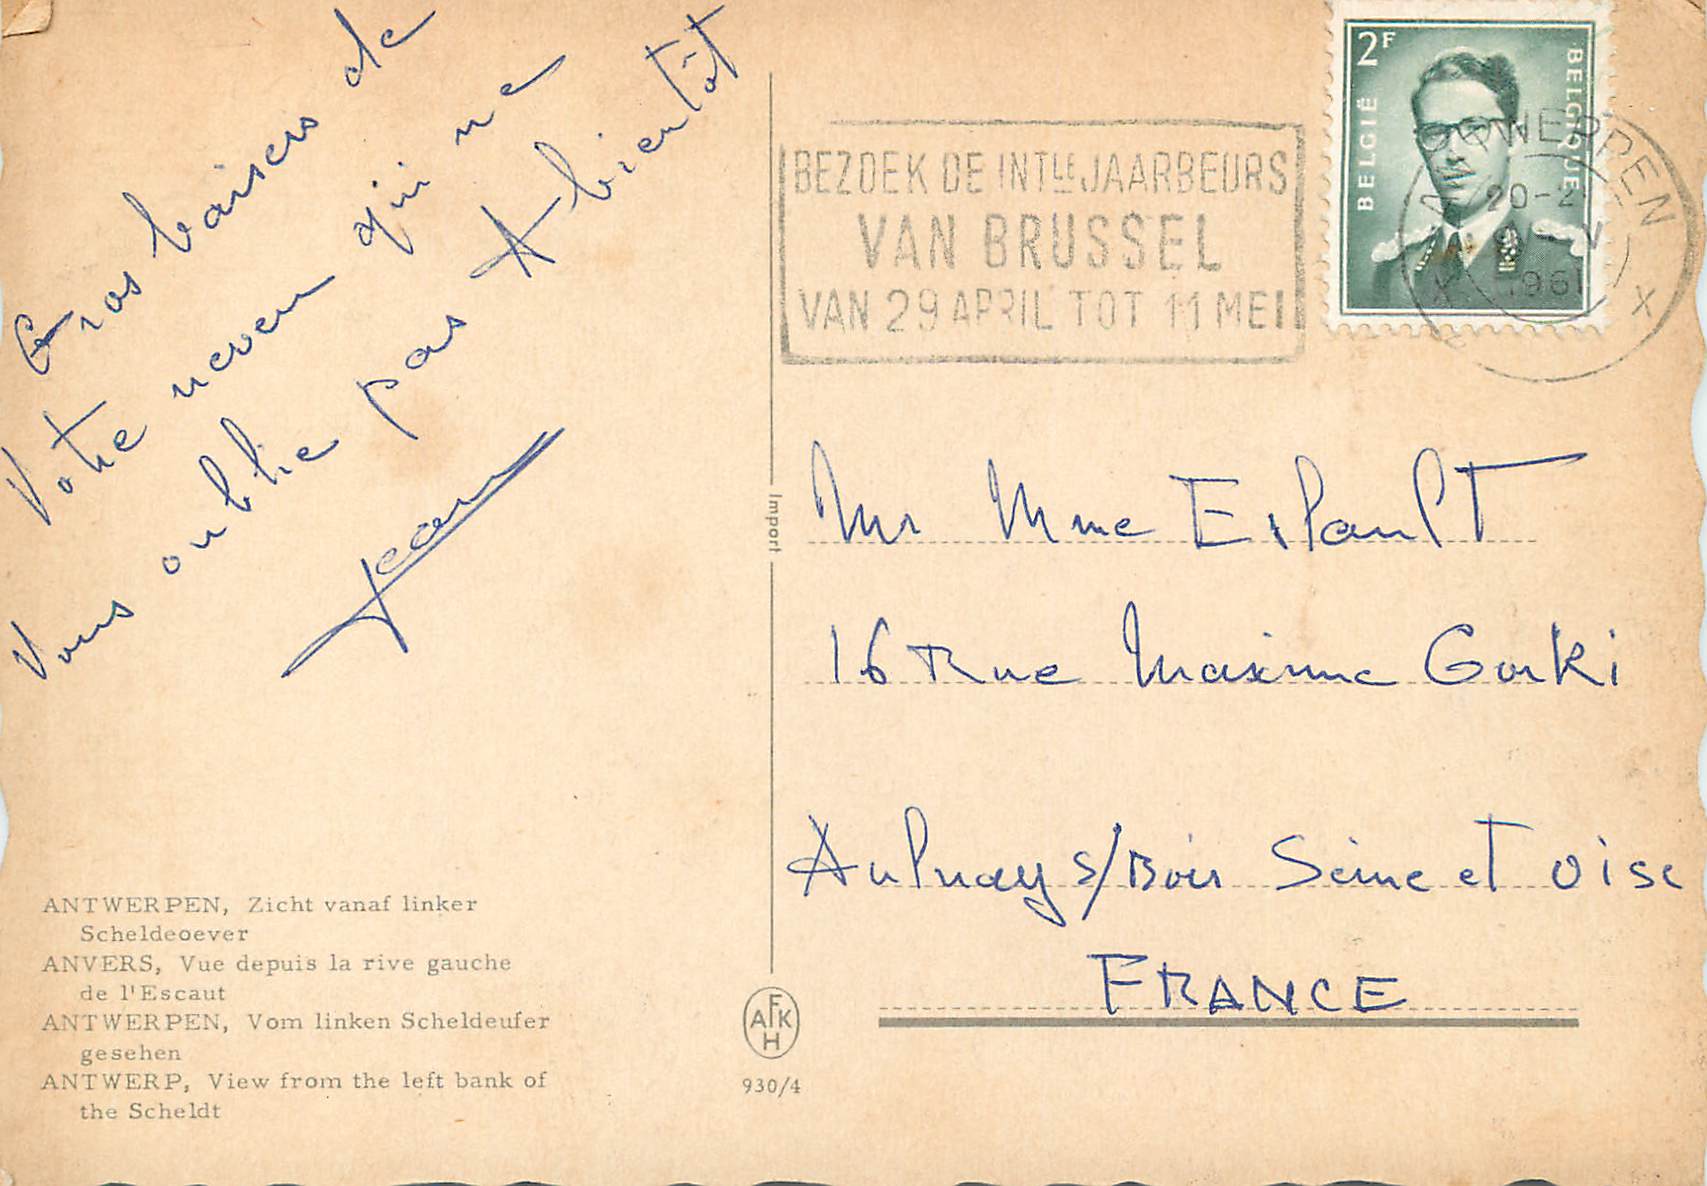 Gros baisers de
Votre neveu qui ne
Vous oublie pas A bientôt
Jean
ANTWERPEN, Zicht vanaf linker
Scheldeoever
ANVERS, Vue depuis la rive gauche
de l'Escaut
ANTWERPEN, Vom linken Scheldeufer
gesehen
ANTWERP, View from the left bank of
the Scheldt
Import
AFKH
930/4
BEZOEK DE INTLE JAARBEURS
VAN BRUSSEL
VAN 29 APRIL TOT 11 MEI
2F
BELGIË
BELGIQUE
ANTWERPEN
X X
1961
Mr Mme
16 Rue Maxime Gorki
Aulnay s/Bois Seine et Oise
FRANCE